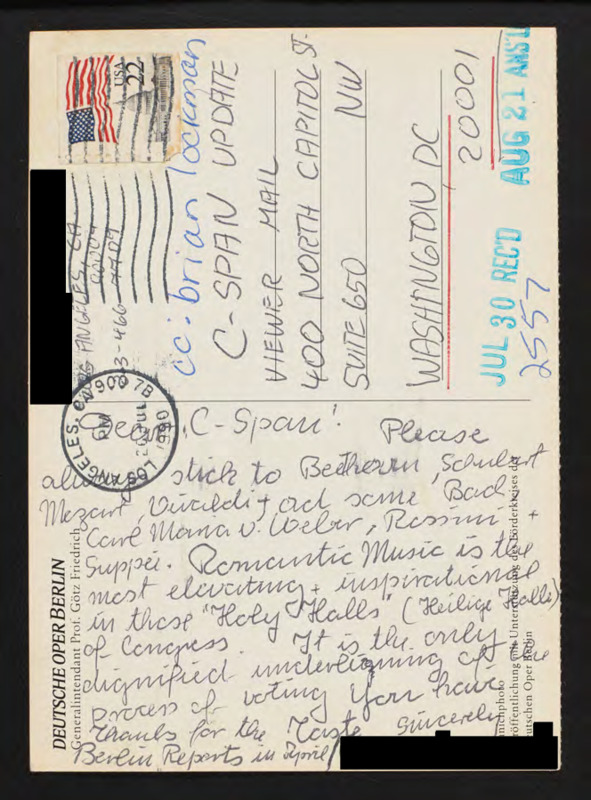 USA
22
cc: brian lockman
C-SPAN UPDATE
VIEWER MAIL
400 NORTH CAPITOL ST.
SUITE 650 NW
WASHINGTON, DC
20001
JUL 30 REC'D
AUG 21 ANS'D
2557
ANGELES, CA
LOS ANGELES, CA 900 7B
PM
JUL
1990
Dear C-Span! Please
stick to Beethoven, Schubert
Mozart, Vivaldi + ad some Bach
Carl Maria v. Weber, Rossini +
Suppei. Romantic Music is the
most elevating + inspirational
in these "Holy Halls" (Heilige Halle)
of Congress. It is the only
dignified underlining of the
process of voting you have
Thanks for the Taste Sincerely
Berlin Reports in April!
DEUTSCHE OPER BERLIN
Generalintendant Prof. Götz Friedrich
Veröffentlichung mit Unterstützung des Förderkreises der
Deutschen Oper Berlin